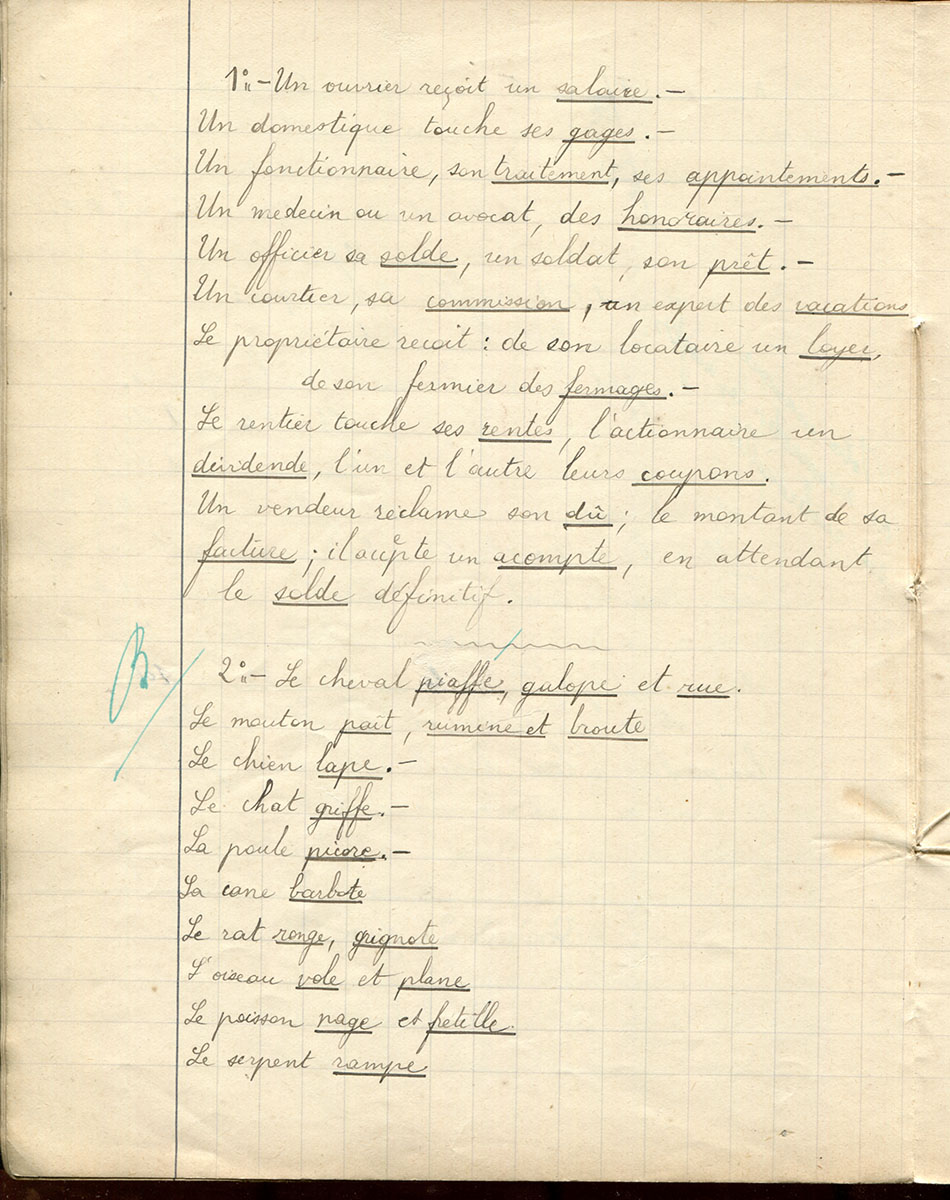 1° - Un ouvrier reçoit un salaire. -
Un domestique touche ses gages. -
Un fonctionnaire, son traitement, ses appointements. -
Un medecin ou un avocat, des honoraires. -
Un officier sa solde, un soldat, son prêt. -
Un courtier, sa commission, un expert des vacations
Le propriétaire reçoit : de son locataire un loyer,
de son fermier des fermages. -
Le rentier touche ses rentes, l'actionnaire un
dividende, l'un et l'autre leurs coupons.
Un vendeur réclame son dû ; le montant de sa
facture ; il accepte un acompte, en attendant
le solde définitif.
B
2° - Le cheval piaffe, galope et rue.
Le mouton pait, rumine et broute
Le chien lape. -
Le chat griffe. -
La poule picore. -
La cane barbote
Le rat ronge, grignote
L'oiseau vole et plane
Le poisson nage et fretille.
Le serpent rampe